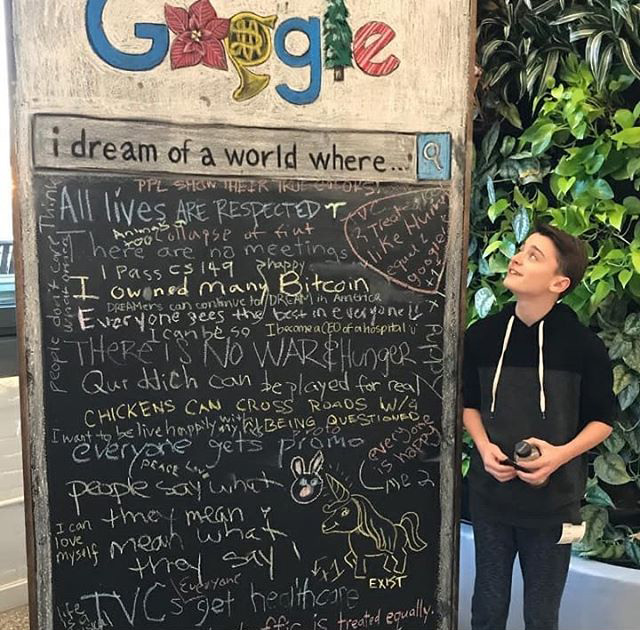 Google
i dream of a world where...
PPL SHOW THEIR TRUE COLORS!
All lives ARE RESPECTED
Animals too
Collapse of fiat
There are no meetings
TVC's
2 Treat
like Human
equal 2
googler
I PASS CS 149
happy
I owned many Bitcoin
DREAMers can continue to DREAM in America
Everyone sees the best in everyone!!
I can be so
I become a CEO of a hospital
THERE IS NO WAR & Hunger
Quiddich can be played for real
CHICKENS CAN CROSS ROADS W/o
BEING QUESTIONED
I want to be live happily with my
everyone gets promo
everyone
is happy
PEACE Love
people say what
they mean &
mean what
they say
me 2
I can
love
myself
People don't care
what others
Think
+1
EXIST
Everyone
TVCs get healthcare
life
is treated equally.